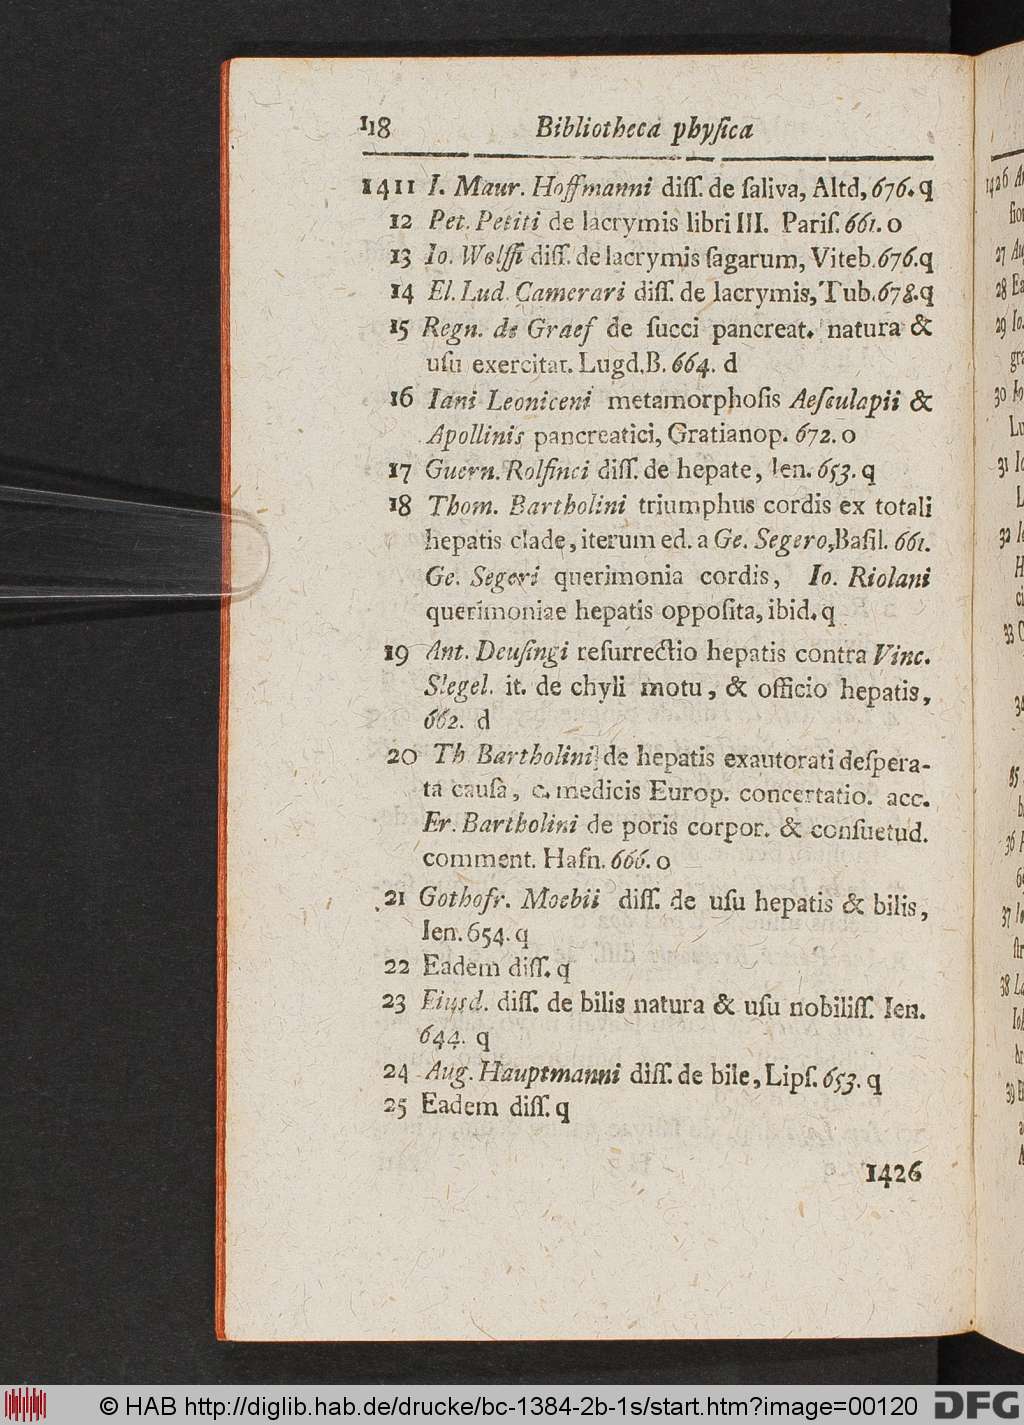 118 Bibliotheca phyſica
1411 I. Maur. Hoffmanni diſſ. de ſaliva, Altd, 676. q
12 Pet. Petiti de lacrymis libri III. Pariſ. 661. o
13 Io. Wolffi diſſ. de lacrymis ſagarum, Viteb. 676. q
14 El. Lud. Camerari diſſ. de lacrymis, Tub. 678. q
15 Regn. de Graef de ſucci pancreat. natura &
uſu exercitat. Lugd. B. 664. d
16 Iani Leoniceni metamorphoſis Aeſculapii &
Apollinis pancreatici, Gratianop. 672. o
17 Guern. Rolfinci diſſ. de hepate, Ien. 653. q
18 Thom. Bartholini triumphus cordis ex totali
hepatis clade, iterum ed. a Ge. Segero, Baſil. 661.
Ge. Segeri querimonia cordis, Io. Riolani
querimoniae hepatis oppoſita, ibid. q
19 Ant. Deuſingi reſurrectio hepatis contra Vinc.
Slegel. it. de chyli motu, & officio hepatis,
662. d
20 Th Bartholini de hepatis exautorati deſpera-
ta cauſa, c. medicis Europ. concertatio. acc.
Er. Bartholini de poris corpor. & conſuetud.
comment. Hafn. 666. o
21 Gothofr. Moebii diſſ. de uſu hepatis & bilis,
Ien. 654. q
22 Eadem diſſ. q
23 Eiusd. diſſ. de bilis natura & uſu nobiliſſ. Ien.
644. q
24 Aug. Hauptmanni diſſ. de bile, Lipſ. 653. q
25 Eadem diſſ. q
1426
1426
27
28
29 Io.
30
31
32
33
34
35
36
37
38
39
© HAB http://diglib.hab.de/drucke/bc-1384-2b-1s/start.htm?image=00120
DFG